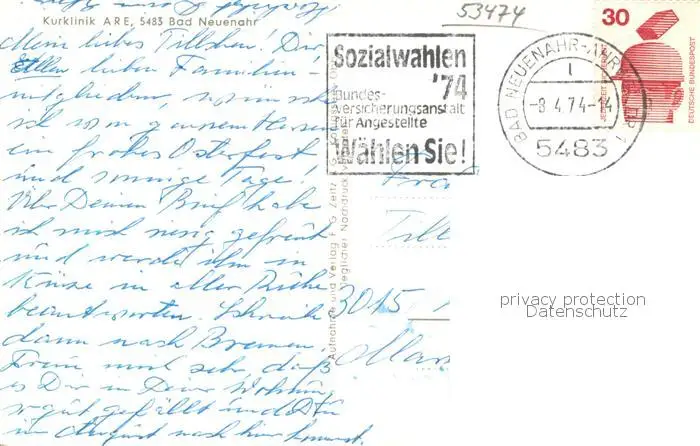 Kurklinik ARE, 5483 Bad Neuenahr
53474
Mein liebes Tillchen! Dir,
allen lieben Familien-
mitgliedern, wünsche
ich von ganzem Herzen
ein frohes Osterfest
und sonnige Tage.
Über Deinen Brief habe
ich mich riesig gefreut
und werde ihn in
Kürze in aller Ruhe
beantworten. Schreibe
dann nach Bremen.
Freue mich sehr, daß
es Dir in Deiner Wohnung
so gut gefällt und Du
im August nach hier kommst.
Aufnahme und Verlag F. G. Zeitz
jeglicher Nachdruck verboten
Sozialwahlen
'74
Bundes-
versicherungsanstalt
für Angestellte
Wählen Sie!
BAD NEUENAHR-AHRWEILER 1
l
-8.4.74-14
5483
30
JEDERZEIT SICHERHEIT
DEUTSCHE BUNDESPOST
Frau
Till
3015
privacy protection
Datenschutz